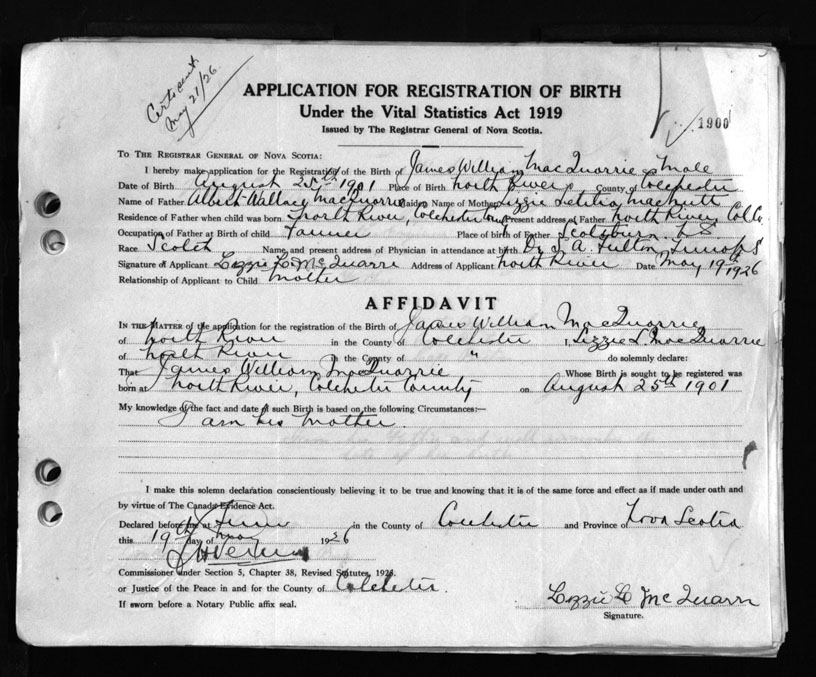 Cert sent
May 21/26.
APPLICATION FOR REGISTRATION OF BIRTH
Under the Vital Statistics Act 1919
Issued by The Registrar General of Nova Scotia.
1900
TO THE REGISTRAR GENERAL OF NOVA SCOTIA:
I hereby make application for the Registration of the Birth of James William MacQuarrie Male
Date of Birth August 25th 1901 Place of Birth North River County of Colchester
Name of Father Albert Wallace MacQuarrie Maiden Name of Mother Lizzie Letitia MacNutt
Residence of Father when child was born North River, Colchester Present address of Father North River Col Co.
Occupation of Father at Birth of child Place of birth of Father Scotsburn N S
Race Scotch Name, and present address of Physician in attendance at birth Dr J. A. Fulton, Truro N S
Signature of Applicant Lizzie L. McQuarri Address of Applicant North River Date May 19th 1926
Relationship of Applicant to Child Mother
AFFIDAVIT
IN THE MATTER of the application for the registration of the Birth of James William MacQuarrie
of North River in the County of Colchester I, Lizzie L. MacQuarrie
of North River in the County of " do solemnly declare:
That James William MacQuarrie Whose Birth is sought to be registered was
born at North River, Colchester County on August 25th 1901
My knowledge of the fact and date of such Birth is based on the following Circumstances:—
I am his mother.
I make this solemn declaration conscientiously believing it to be true and knowing that it is of the same force and effect as if made under oath and
by virtue of The Canada Evidence Act.
Declared before me at Truro in the County of Colchester and Province of Nova Scotia
this 19th day of May 1926
Commissioner under Section 5, Chapter 38, Revised Statutes, 1923.
or Justice of the Peace in and for the County of Colchester.
If sworn before a Notary Public affix seal.
Lizzie L McQuarri
Signature.